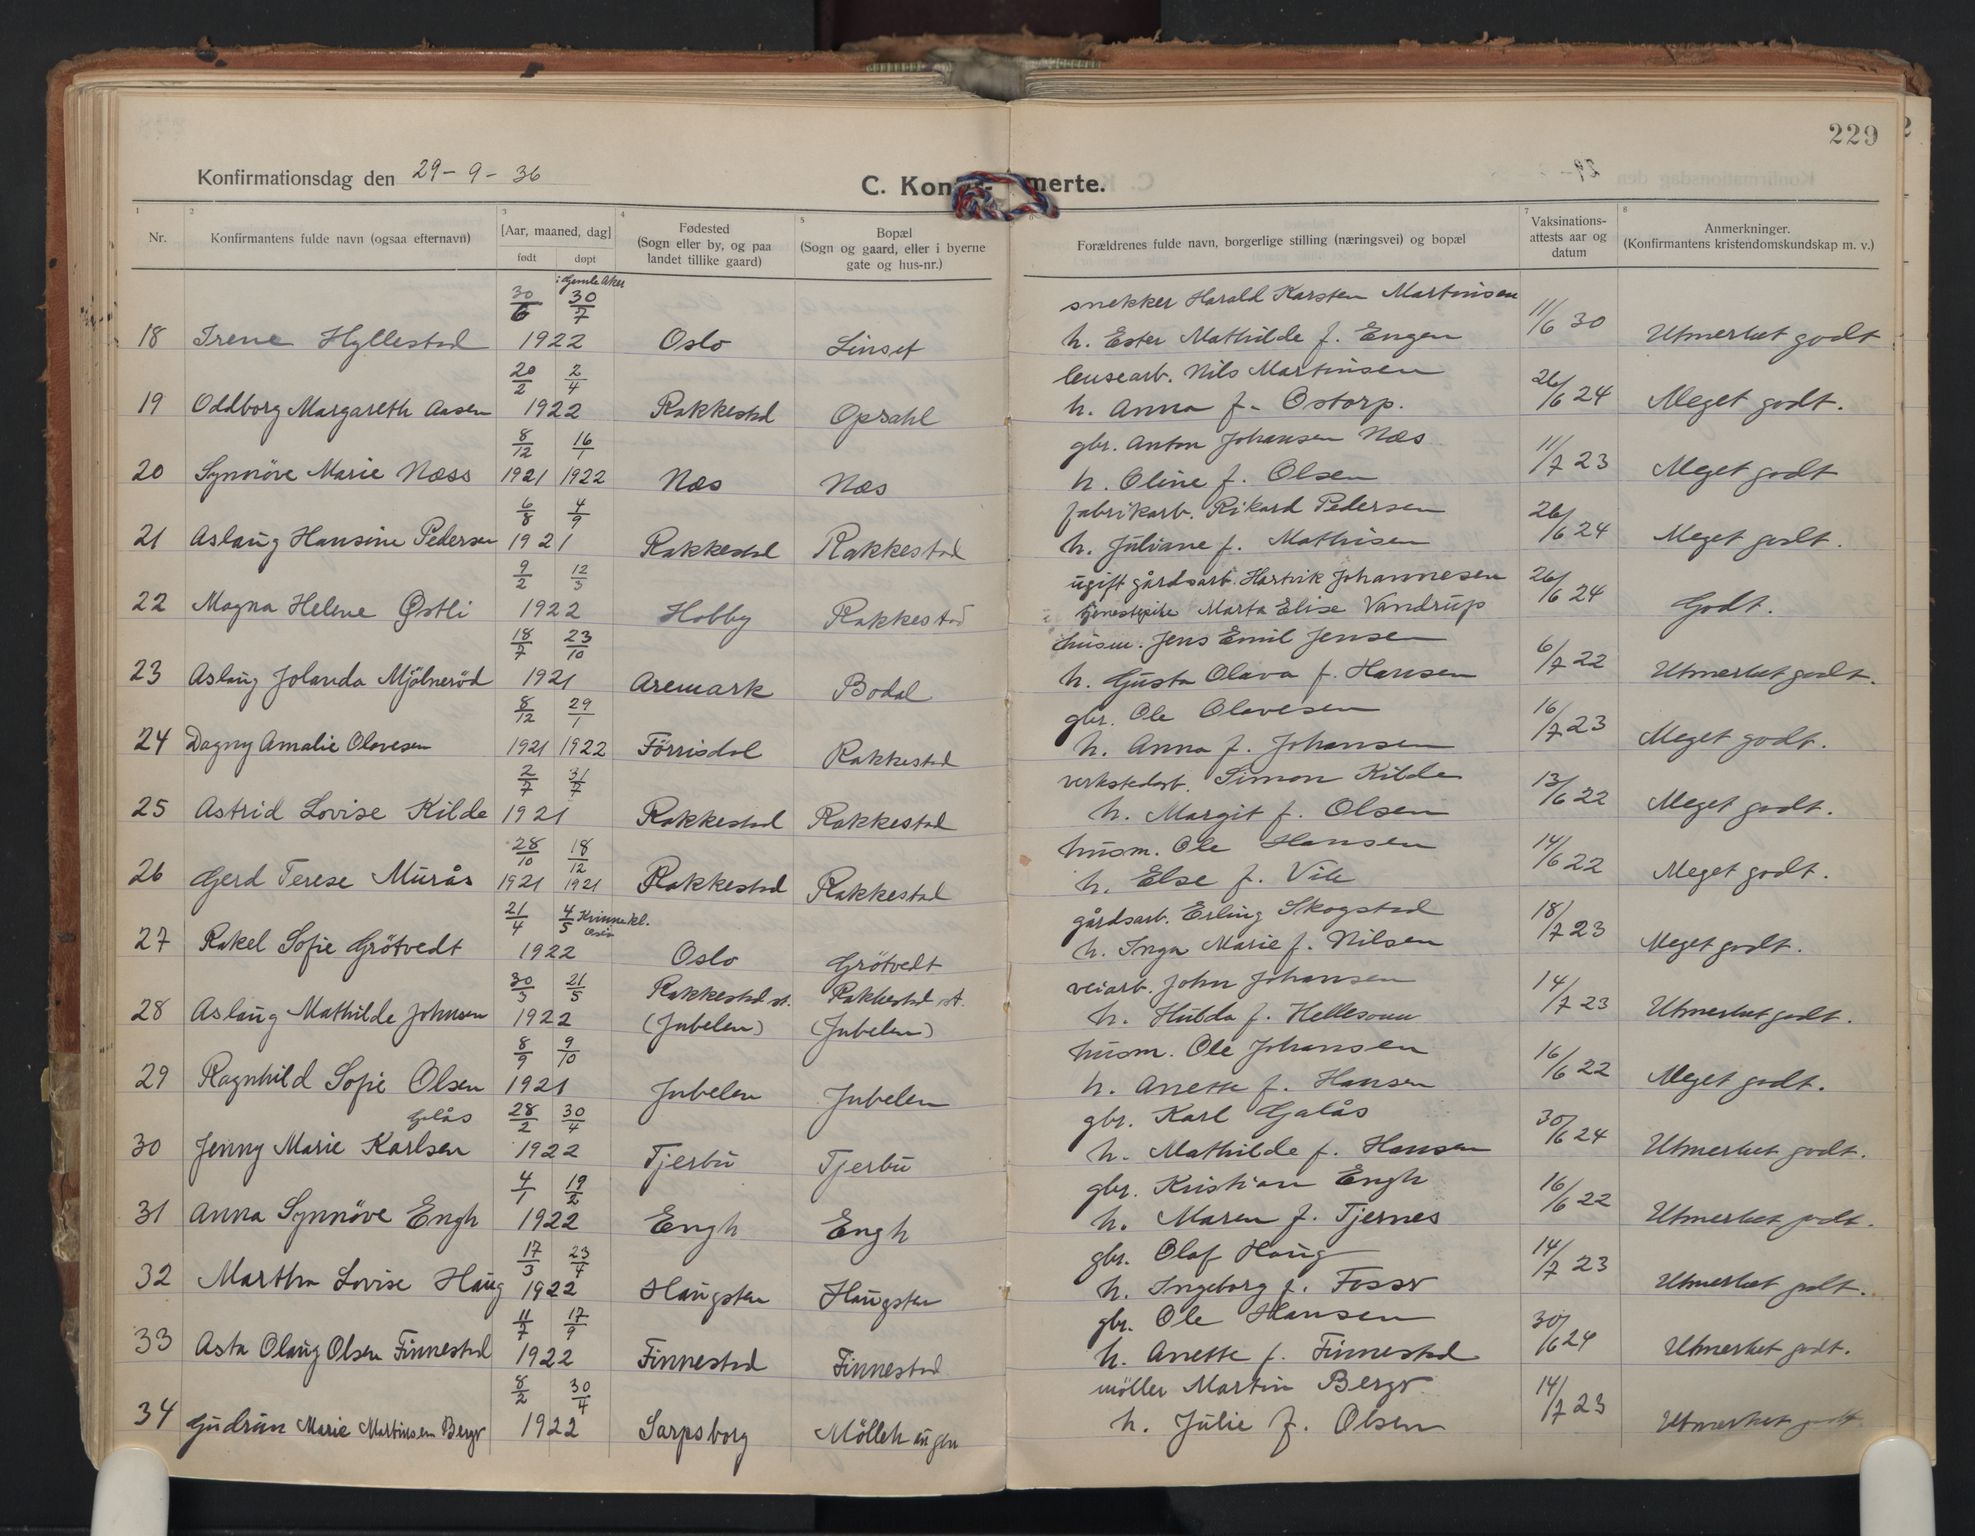 229
Konfirmationsdag den 29-9-36
C. Konf merte.
1 2 3 4 5 6 7 8
Nr. Konfirmantens fulde navn (ogsaa efternavn) [Aar, maaned, dag] født døpt Fødested (Sogn eller by, og paa landet tillike gaard) Bopæl (Sogn og gaard, eller i byerne gate og hus-nr.) Forældrenes fulde navn, borgerlige stilling (næringsvei) og bopæl Vaksinationsattests aar og datum Anmerkninger. (Konfirmantens kristendomskundskap m. v.)
i Gamle Aker
30/6 30/7 snekker Harald Karsten Martinsen
18 Irene Hyllestad 1922 Oslo Linset h. Ester Mathilde f. Engen 11/6 30 Utmerket godt
20/2 2/4 lensearb. Nils Martinsen
19 Oddborg Margareth Aasen 1922 Rakkestad Opsahl h. Anna f. Ostorp. 26/6 24 Meget godt.
8/12 16/1 gbr. Anton Johansen Næs
20 Synnöve Marie Næss 1921 1922 Næs Næs h. Oline f. Olsen 11/7 23 Meget godt
6/8 4/9 fabrikarb. Rikard Pedersen
21 Aslaug Hansine Pedersen 1921 Rakkestad Rakkestad h. Juliane f. Mathisen 26/6 24 Meget godt.
9/2 12/3 ugift gårdsarb. Hartvik Johannesen
22 Magna Helene Østli 1922 Hobby Rakkestad tjenestepike Marta Elise Vandrup 26/6 24 Godt.
18/7 23/10 husm. Jens Emil Jensen
23 Aslaug Jolanda Mjölneröd 1921 Aremark Bodal h. Gusta Olava f. Hansen 6/7 22 Utmerket godt.
8/12 29/1 gbr. Ole Olavesen
24 Dagny Amalie Olavesen 1921 1922 Förrisdal Rakkestad h. Anna f. Johansen 16/7 23 Meget godt.
2/7 31/7 verkstedarb. Simon Kilde
25 Astrid Lovise Kilde 1921 Rakkestad Rakkestad h. Margit f. Olsen 13/6 22 Meget godt.
28/10 18/12 husm. Ole Hansen
26 Gerd Terese Murås 1921 1921 Rakkestad Rakkestad h. Else f. Vik 14/6 22 Meget godt.
21/4 4/5 Kvinnekl. Oslo gårdsarb. Erling Skogstad
27 Rakel Sofie Grötvedt 1922 Oslo Grötvedt h. Inga Marie f. Nilsen 18/7 23 Meget godt.
30/3 21/5 Rakkestad st. Rakkestad st. veiarb. John Johansen
28 Aslaug Mathilde Johnsen 1922 (Jubelen) (Jubelen) h. Hulda f. Hellesaa 14/7 23 Utmerket godt.
8/9 9/10 husm. Ole Johansen
29 Ragnhild Sofie Olsen 1921 Jubelen Jubelen h. Anette f. Hansen 16/6 22 Meget godt.
Galås 28/2 30/4 gbr. Karl Galås
30 Jenny Marie Karlsen 1922 Tjerbu Tjerbu h. Mathilde f. Hansen 30/6 24 Utmerket godt.
4/1 19/2 gbr. Kristian Engh
31 Anna Synnöve Engh 1922 Engh Engh h. Maren f. Tjernes 16/6 22 Utmerket godt.
17/3 23/4 gbr. Olaf Haug
32 Martha Lovise Haug 1922 Haugsten Haugsten h. Ingeborg f. Fosser 14/7 23 Utmerket godt.
11/7 17/9 gbr. Ole Hansen
33 Asta Olaug Olsen Finnestad 1922 Finnestad Finnestad h. Anette f. Finnestad 30/6 24 Utmerket godt.
8/2 30/4 möller Martin Berger
34 Gudrun Marie Martinsen Berger 1922 Sarpsborg Möllehaugen h. Julie f. Olsen 14/7 23 Utmerket godt.